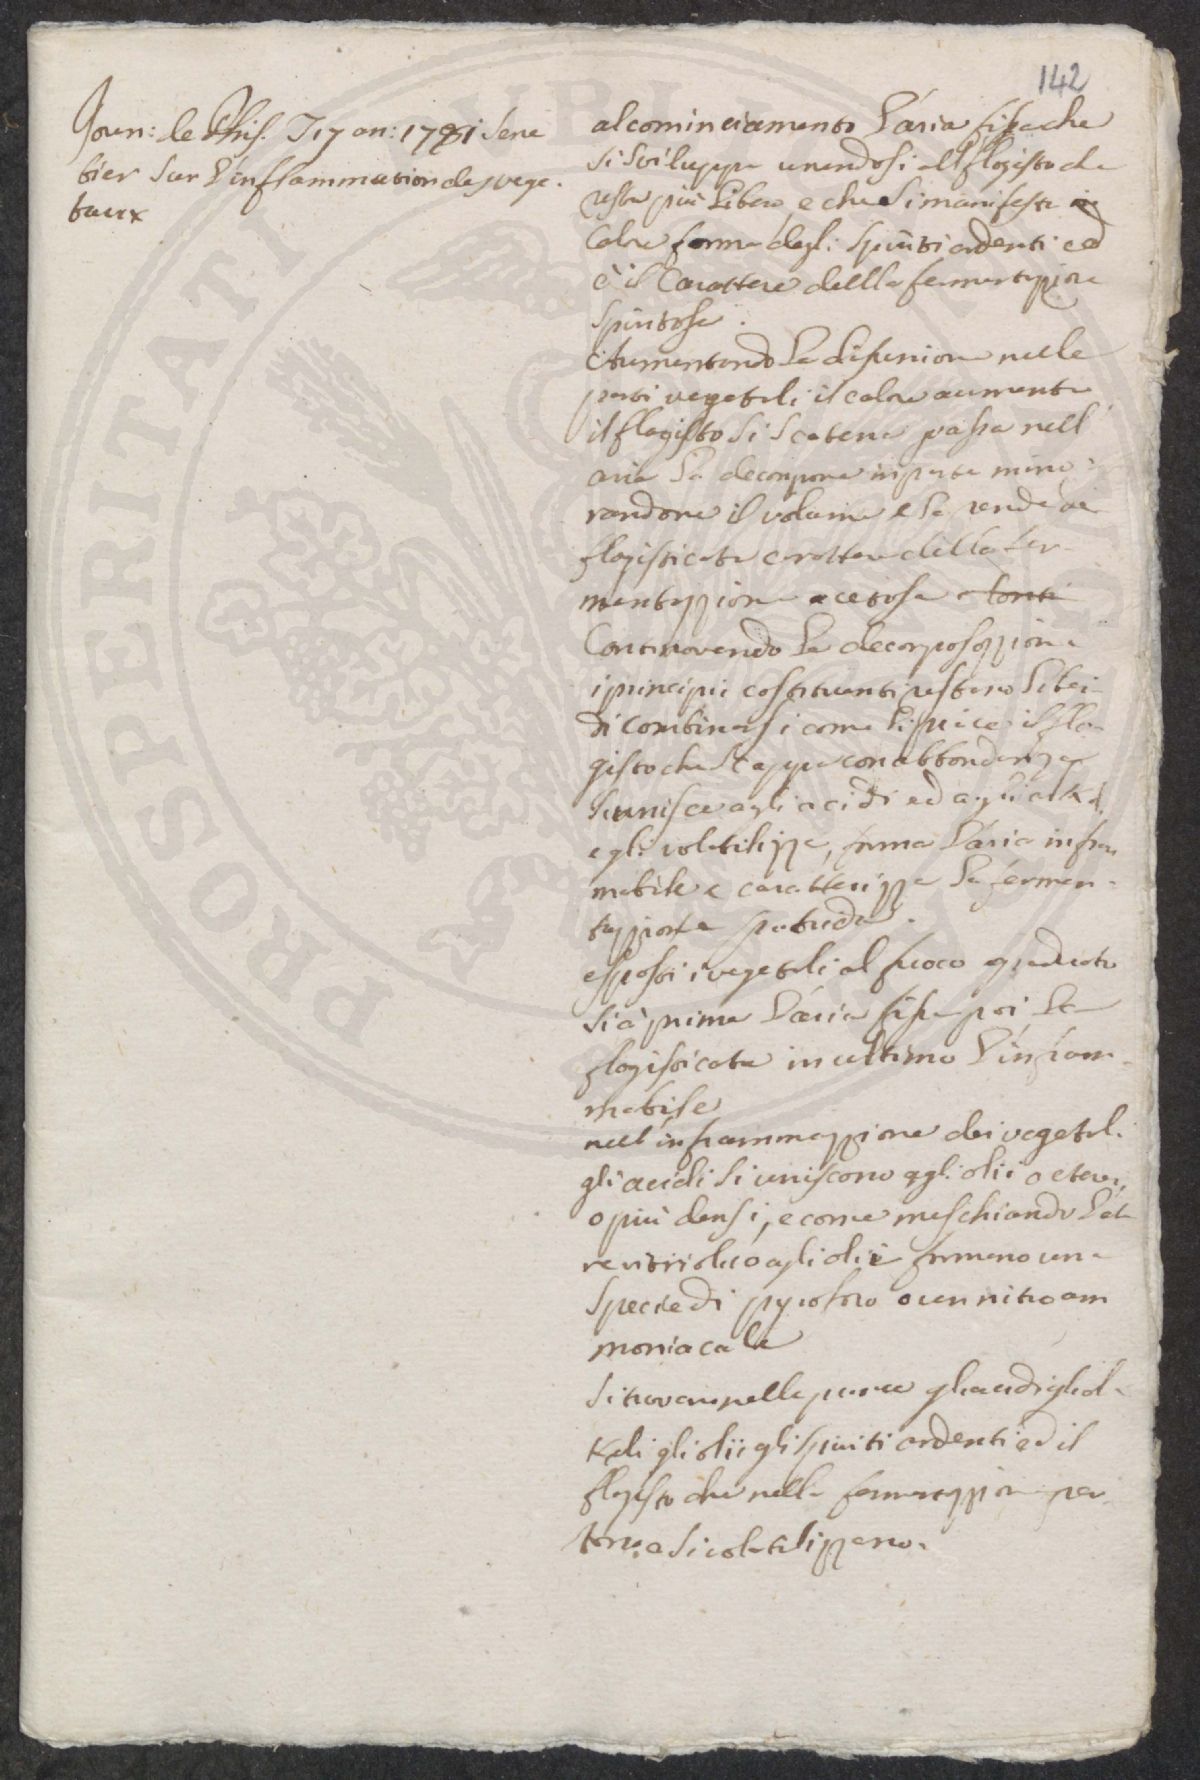 142
Journ: de Phis. T 17 an: 1781 Sene
bier sur l'inflammation des vege.
taux
al cominciamento l'aria fissa che
si sviluppa unendosi al flogisto che
resta più libero e che si manifesta in
calore forma degli spiriti ardenti ed
è il Carattere della fermentazzione
spiritosa.
Aumentando la disunione nelle
parti vegetali il calore aumenta
il flogisto si scatena passa nell'
aria la decompone in parte mino
randone il volume e la rende de
flogisticata carattere della fer
mentazzione acetosa
Continovando la decomposizzione
i principii costituenti restano liberi
di combinarsi come li piace il flo
gisto che scappa con abbondanza
si unisce agli acidi ed agli alkali
e gli volatilizza, forma l'aria infiam
mabile e caratterizza la fermen
tazzione putrida.
esposti i vegetali al fuoco graduato
si à prima l'aria fissa poi la
flogisticata in ultimo l'infiam
mabile
nell'infiammazzione dei vegetali
gli acidi si uniscono agli olii o eterei,
o più densi, e come mischiando l'et
re vitriolico agli olii formano una
specie di pyroforo o un nitro am
moniacale
si trovano nelle piante gli acidi gli al
kali gli olii gli spiriti ardenti ed il
flogisto che nella fermentazzione
si volatilizzano.